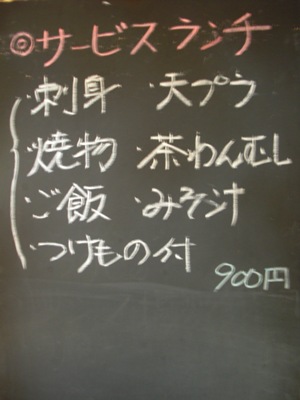 ◎サービスランチ
・刺身 ・天プラ
・焼物 ・茶わんむし
・ご飯 ・みそ汁
・つけもの付
900円